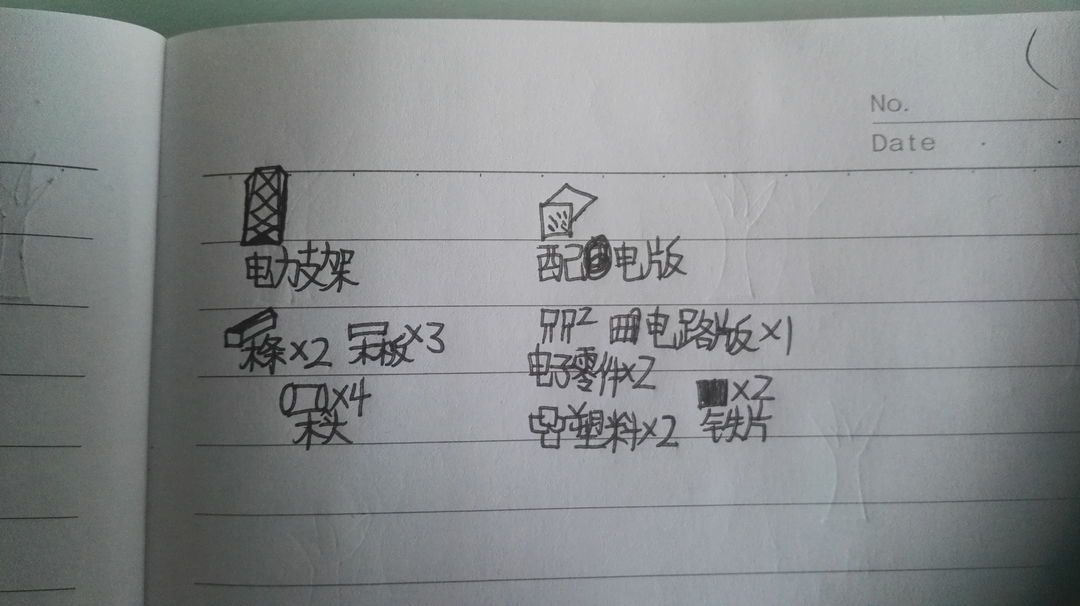 No.
Date
电力支架
木条×2 木板×3
×4
木头
配电版
电路版×1
电子零件×2
塑料×2
×2
铁片